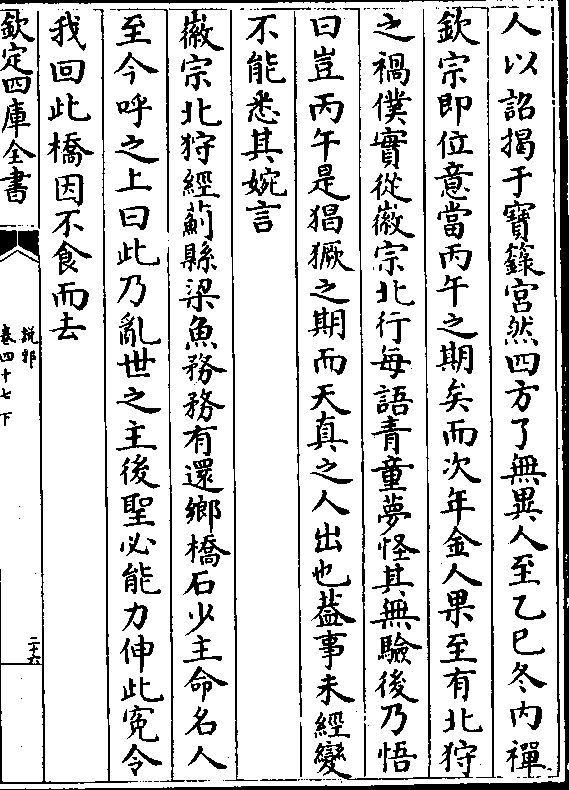 人以詔揭于寶籙宮然四方了無異人至乙巳冬内禪
欽宗即位意當丙午之期矣而次年金人果至有北狩
之禍僕實從徽宗北行每語青童夢怪其無驗後乃悟
曰豈丙午是猖獗之期而天真之人出也葢事未經變
不能悉其婉言
徽宗北狩經薊縣梁魚務務有還鄉橋石少主命名人
至今呼之上曰此乃亂世之主後聖必能力伸此寃令
我回此橋因不食而去
欽定四庫全書
説郛
卷四十七下
二十六